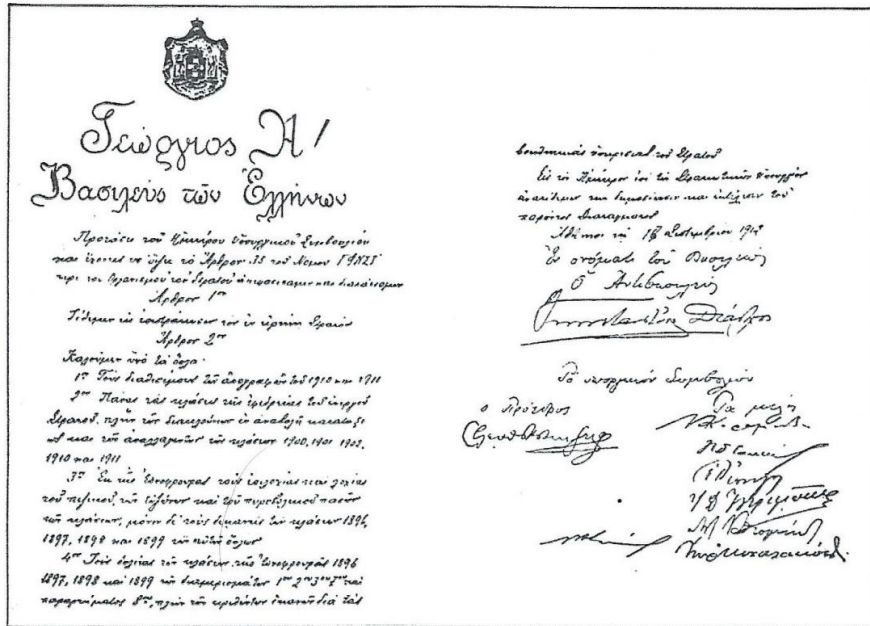 Γεώργιος Α/
Βασιλεύς τῶν Ἑλλήνων
Προτάσει τοῦ Ἡμετέρου Ὑπουργικοῦ Συμβουλίου
καὶ ἔχοντες ὑπ' ὄψει τὸ Ἄρθρον 35 τοῦ Νόμου ΓΦΝΣΤ'
περὶ τοῦ Ὀργανισμοῦ τοῦ Στρατοῦ ἀπεφασίσαμεν καὶ διατάσσομεν
Ἄρθρον 1ον
Τίθεμεν εἰς ἐπιστράτευσιν τὸν ἐν εἰρήνῃ Στρατόν
Ἄρθρον 2ον
Καλοῦμεν ὑπὸ τὰ ὅπλα·
1ον Τοὺς διαθεσίμους τῶν ἀπογραφῶν τοῦ 1910 καὶ 1911
2ον Πάσας τὰς κλάσεις τῆς ἐφεδρείας τοῦ ἐνεργοῦ
Στρατοῦ, πλὴν τῶν διατελούντων ἐν ἀναβολῇ κατατάξε
ως καὶ τῶν ἀπαλλαγέντων τῶν κλάσεων 1900, 1901 1902,
1910 καὶ 1911
3ον Ἐκ τῆς Ἐθνοφρουρᾶς τοὺς ἐπιλοχίας καὶ λοχίας
τοῦ πεζικοῦ, τῶν εὐζώνων καὶ τοῦ πυροβολικοῦ πασῶν
τῶν κλάσεων, μόνον δὲ τοὺς δεκανεῖς τῶν κλάσεων 1896,
1897, 1898 καὶ 1899 τῶν αὐτῶν ὅπλων
4ον Τοὺς ὁπλίτας τῶν κλάσεων τῆς Ἐθνοφρουρᾶς 1896
1897, 1898 καὶ 1899 τῶν διαμερισμάτων 1ου 2ου 3ου καὶ
παραρτήματος 8ου, πλὴν τῶν κριθέντων ἱκανῶν διὰ τὰς
βοηθητικὰς ὑπηρεσίας τοῦ Στρατοῦ
Εἰς τὸν Ἡμέτερον ἐπὶ τῶν Στρατιωτικῶν Ὑπουργὸν
ἀνατίθεμεν τὴν δημοσίευσιν καὶ ἐκτέλεσιν τοῦ
παρόντος Διατάγματος
Ἀθῆναι τῇ Σεπτεμβρίου 1912
Ἐν ὀνόματι τοῦ Βασιλέως
Ὁ Ἀντιβασιλεύς
Κωνσταντῖνος Διάδοχος
Τὸ Ὑπουργικὸν Συμβούλιον
Ὁ Πρόεδρος
Τὰ μέλη